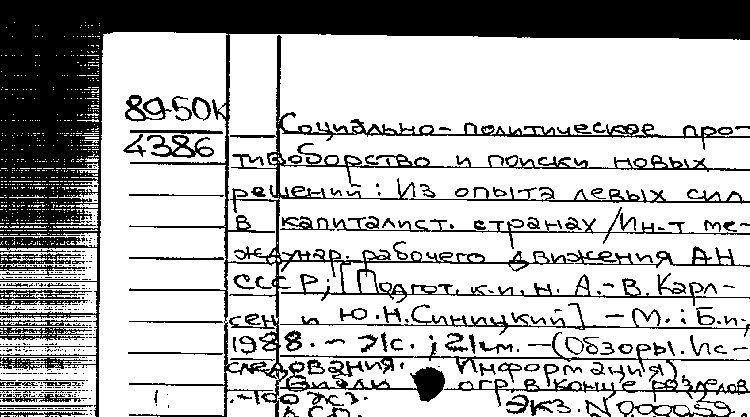 89-50К
4386
Социально-политическое про-
тивоборство и поиски новых
решений: Из опыта левых сил
в капиталист. странах/Ин-т ме-
ждунар. рабочего движения АН
СССР; [Подгот. к.и.н. А.-В. Карл-
сен и Ю.Н. Синицкий] - М.: Б.и.,
1988. - 71с.; 21см. - (Обзоры. Ис-
следования. Информация)
огр. в конце разделов
.-100 экз.
ДСП. Экз. N000059.